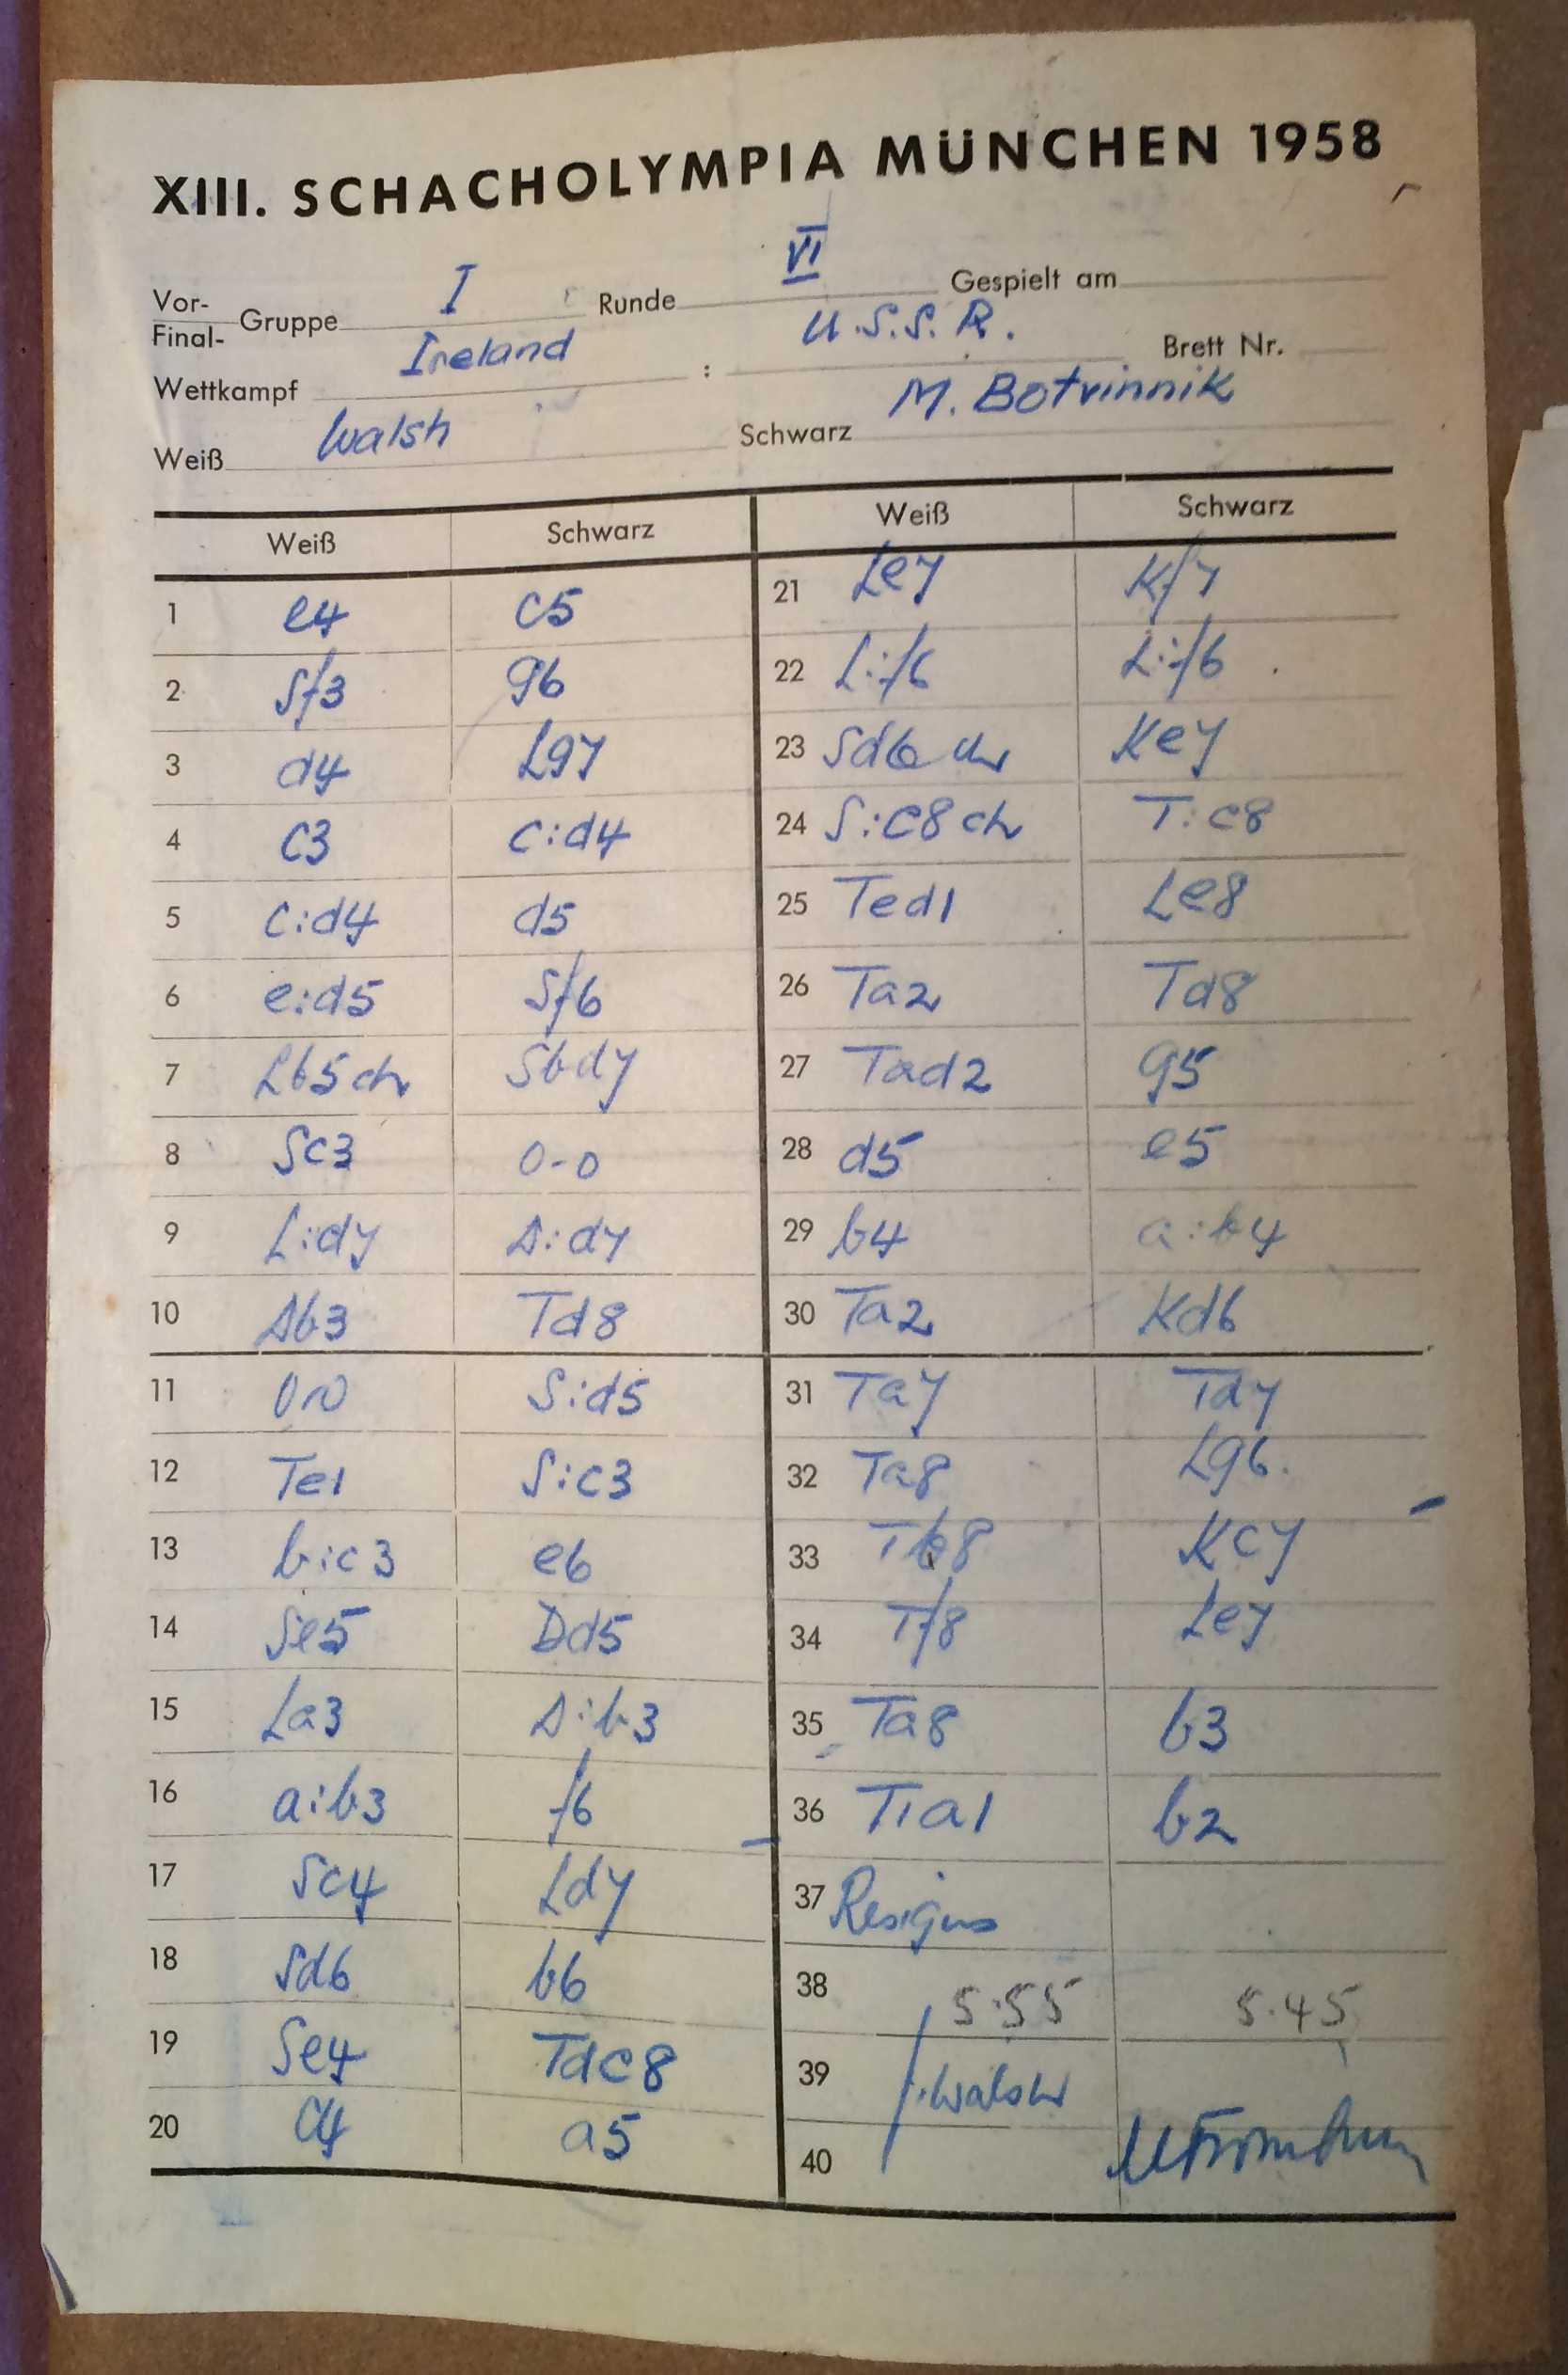 XIII. SCHACHOLYMPIA MÜNCHEN 1958
Vor-
Final- Gruppe I Runde VI Gespielt am
Wettkampf Ireland : U.S.S.R. Brett Nr.
Weiß Walsh Schwarz M. Botvinnik
Weiß Schwarz Weiß Schwarz
1 e4 c5 21 Le7 Kf7
2 Sf3 g6 22 L:f6 L:f6
3 d4 Lg7 23 Sd6 ch Ke7
4 c3 c:d4 24 S:c8 ch T:c8
5 c:d4 d5 25 Ted1 Le8
6 e:d5 Sf6 26 Ta2 Td8
7 Lb5 ch Sbd7 27 Tad2 g5
8 Sc3 0-0 28 d5 e5
9 L:d7 D:d7 29 b4 a:b4
10 Db3 Td8 30 Ta2 Kd6
11 0-0 S:d5 31 Ta7 Td7
12 Te1 S:c3 32 Ta8 Lg6.
13 b:c3 e6 33 Tb8 Kc7
14 Se5 Dd5 34 Tf8 Le7
15 La3 D:b3 35 Ta8 b3
16 a:b3 f6 36 T1a1 b2
17 Sc4 Ld7 37 Resigns
18 Sd6 b6 38 5.55 5.45
19 Se4 Tdc8 39 J. Walsh
20 c4 a5 40